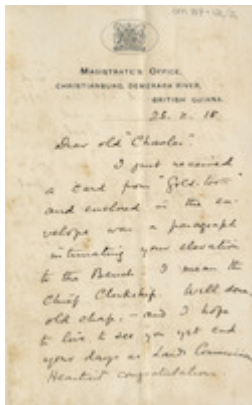 MAGISTRATE'S OFFICE,
CHRISTIANBURG, DEMERARA RIVER,
BRITISH GUIANA.
Dear old "Charlie"
I just received
a card from "Gold-tooth"
and enclosed in the en-
velope was a paragraph
intimating your elevation
to the Bench I mean the
Chief Clerkship. Well done,
old chap, - and I hope
to live to see you yet end
your days as Lands Commission
Heartiest congratulations.